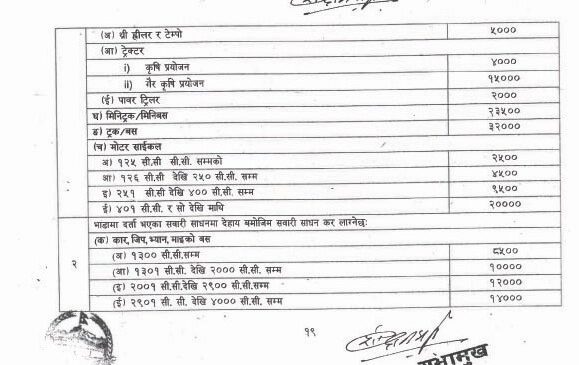 (अ) थ्री ह्वीलर र टेम्पो ५०००
(आ) ट्रेक्टर
i) कृषि प्रयोजन ४०००
ii) गैर कृषि प्रयोजन १५०००
(ई) पावर ट्रिलर २०००
घ) मिनिट्रक/मिनिबस २३५००
ङ) ट्रक/बस ३२०००
(च) मोटर साईकल
अ) १२५ सी.सी सी.सी. सम्मको २५००
आ) १२६ सी.सी देखि २५० सी.सी. सम्म ४५००
इ) २५१ सी.सी देखि ४०० सी.सी. सम्म ९५००
ई) ४०१ सी.सी. र सो देखि माथि २००००
२ भाडामा दर्ता भएका सवारी साधनमा देहाय बमोजिम सवारी साधन कर लाग्नेछः
(क) कार, जिप, भ्यान, माइक्रो बस
(अ) १३०० सी.सी.सम्म ८५००
(आ) १३०१ सी.सी. देखि २००० सी.सी. सम्म १००००
(इ) २००१ सी.सी.देखि २९०० सी.सी.सम्म १२०००
(ई) २९०१ सी. सी. देखि ४००० सी.सी. सम्म १४०००
१९